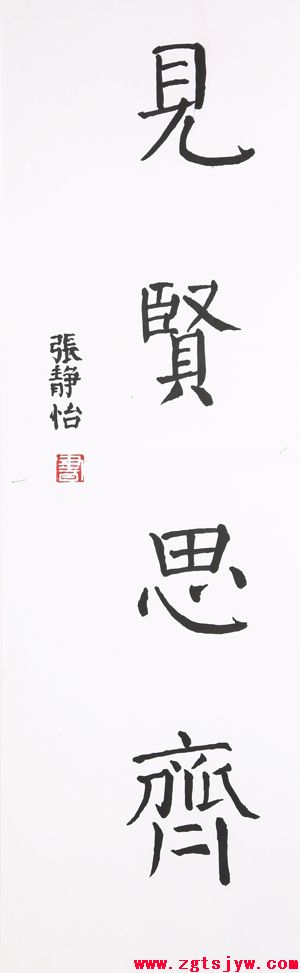 見賢思齊
張静怡
書
www.zgtsjyw.com